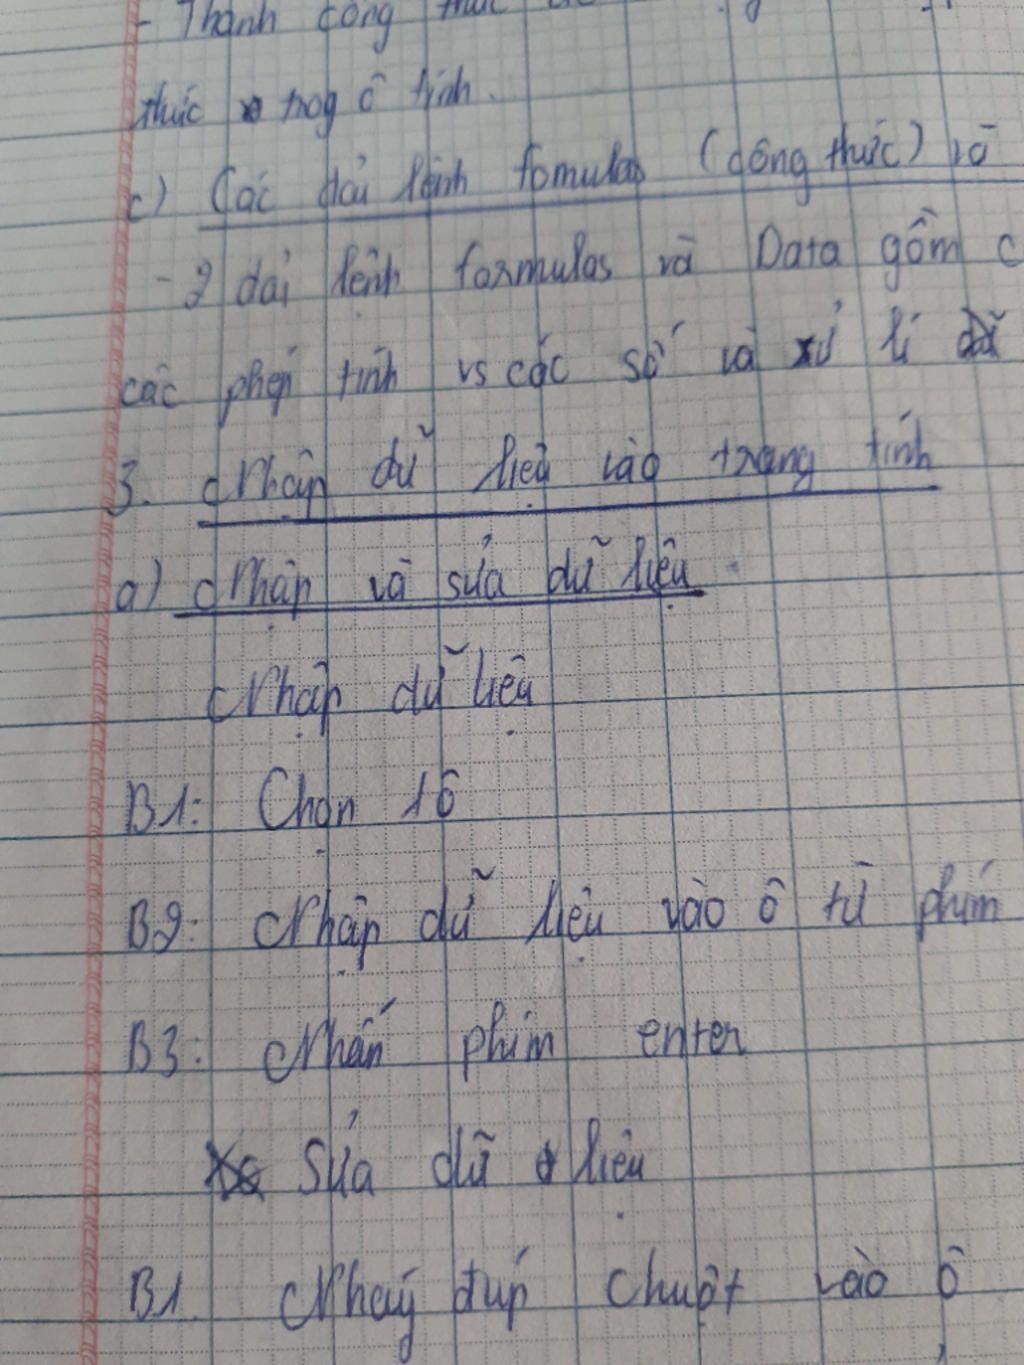 - Thanh công thức
thức trog ô tính.
c) Các dải lệnh fomulas (công thức) và
- 2 dải lệnh formulas và Data gồm c
các phép tính vs các số và xử lí
3. Nhập dữ liệu vào trang tính
a) Nhập và sửa dữ liệu
Nhập dữ liệu
B1: Chọn 1 ô
B2: Nhập dữ liệu vào ô từ phím
B3: Nhấn phím enter
Sửa dữ liệu
B1. Nháy đúp chuột vào ô